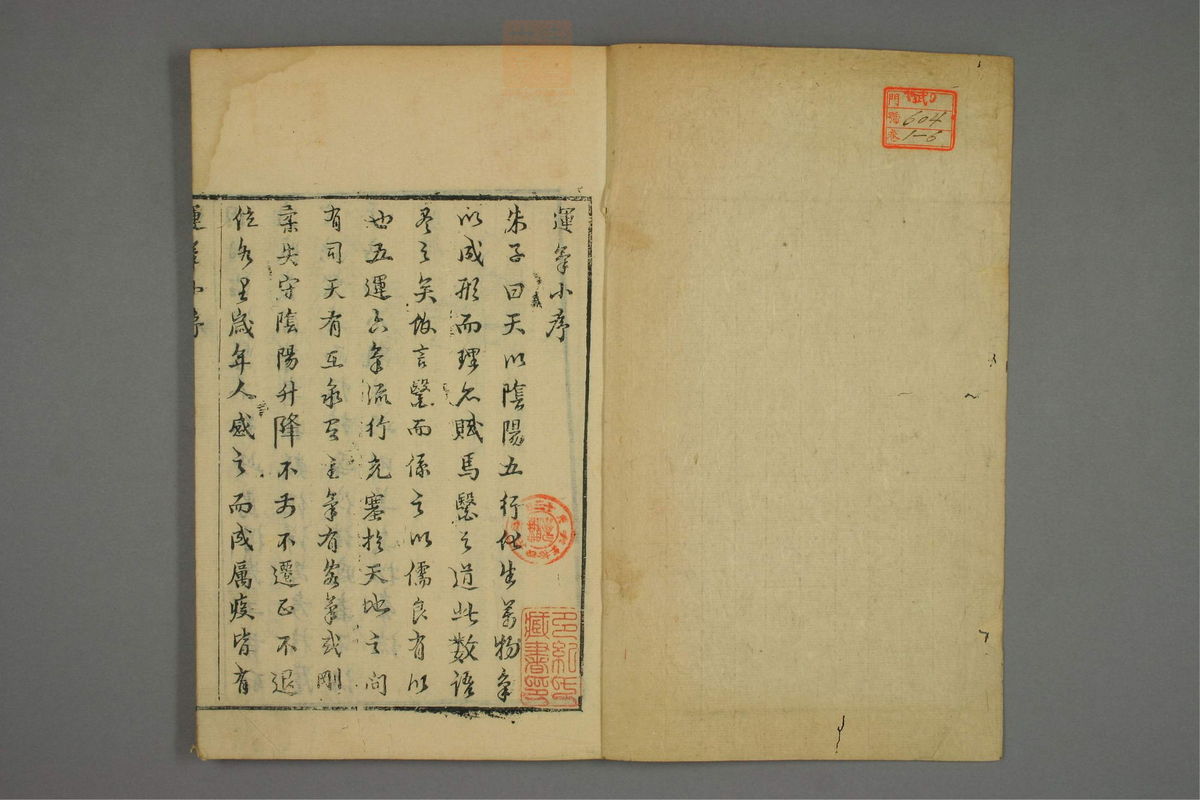 運氣小序
朱子曰天以陰陽五行化生萬物氣
以成形而理亦賦焉醫之道此數語
尽之矣故言醫而係之以儒良有以
也五運六氣流行充塞於天地之间
有司天有在泉有主氣有客氣或剛
柔失守陰陽升降不前不遷正不退
位於是歲年人感之而成厲疫皆有
運氣小序
門
番 604
卷 1-6
多紀氏
藏書印